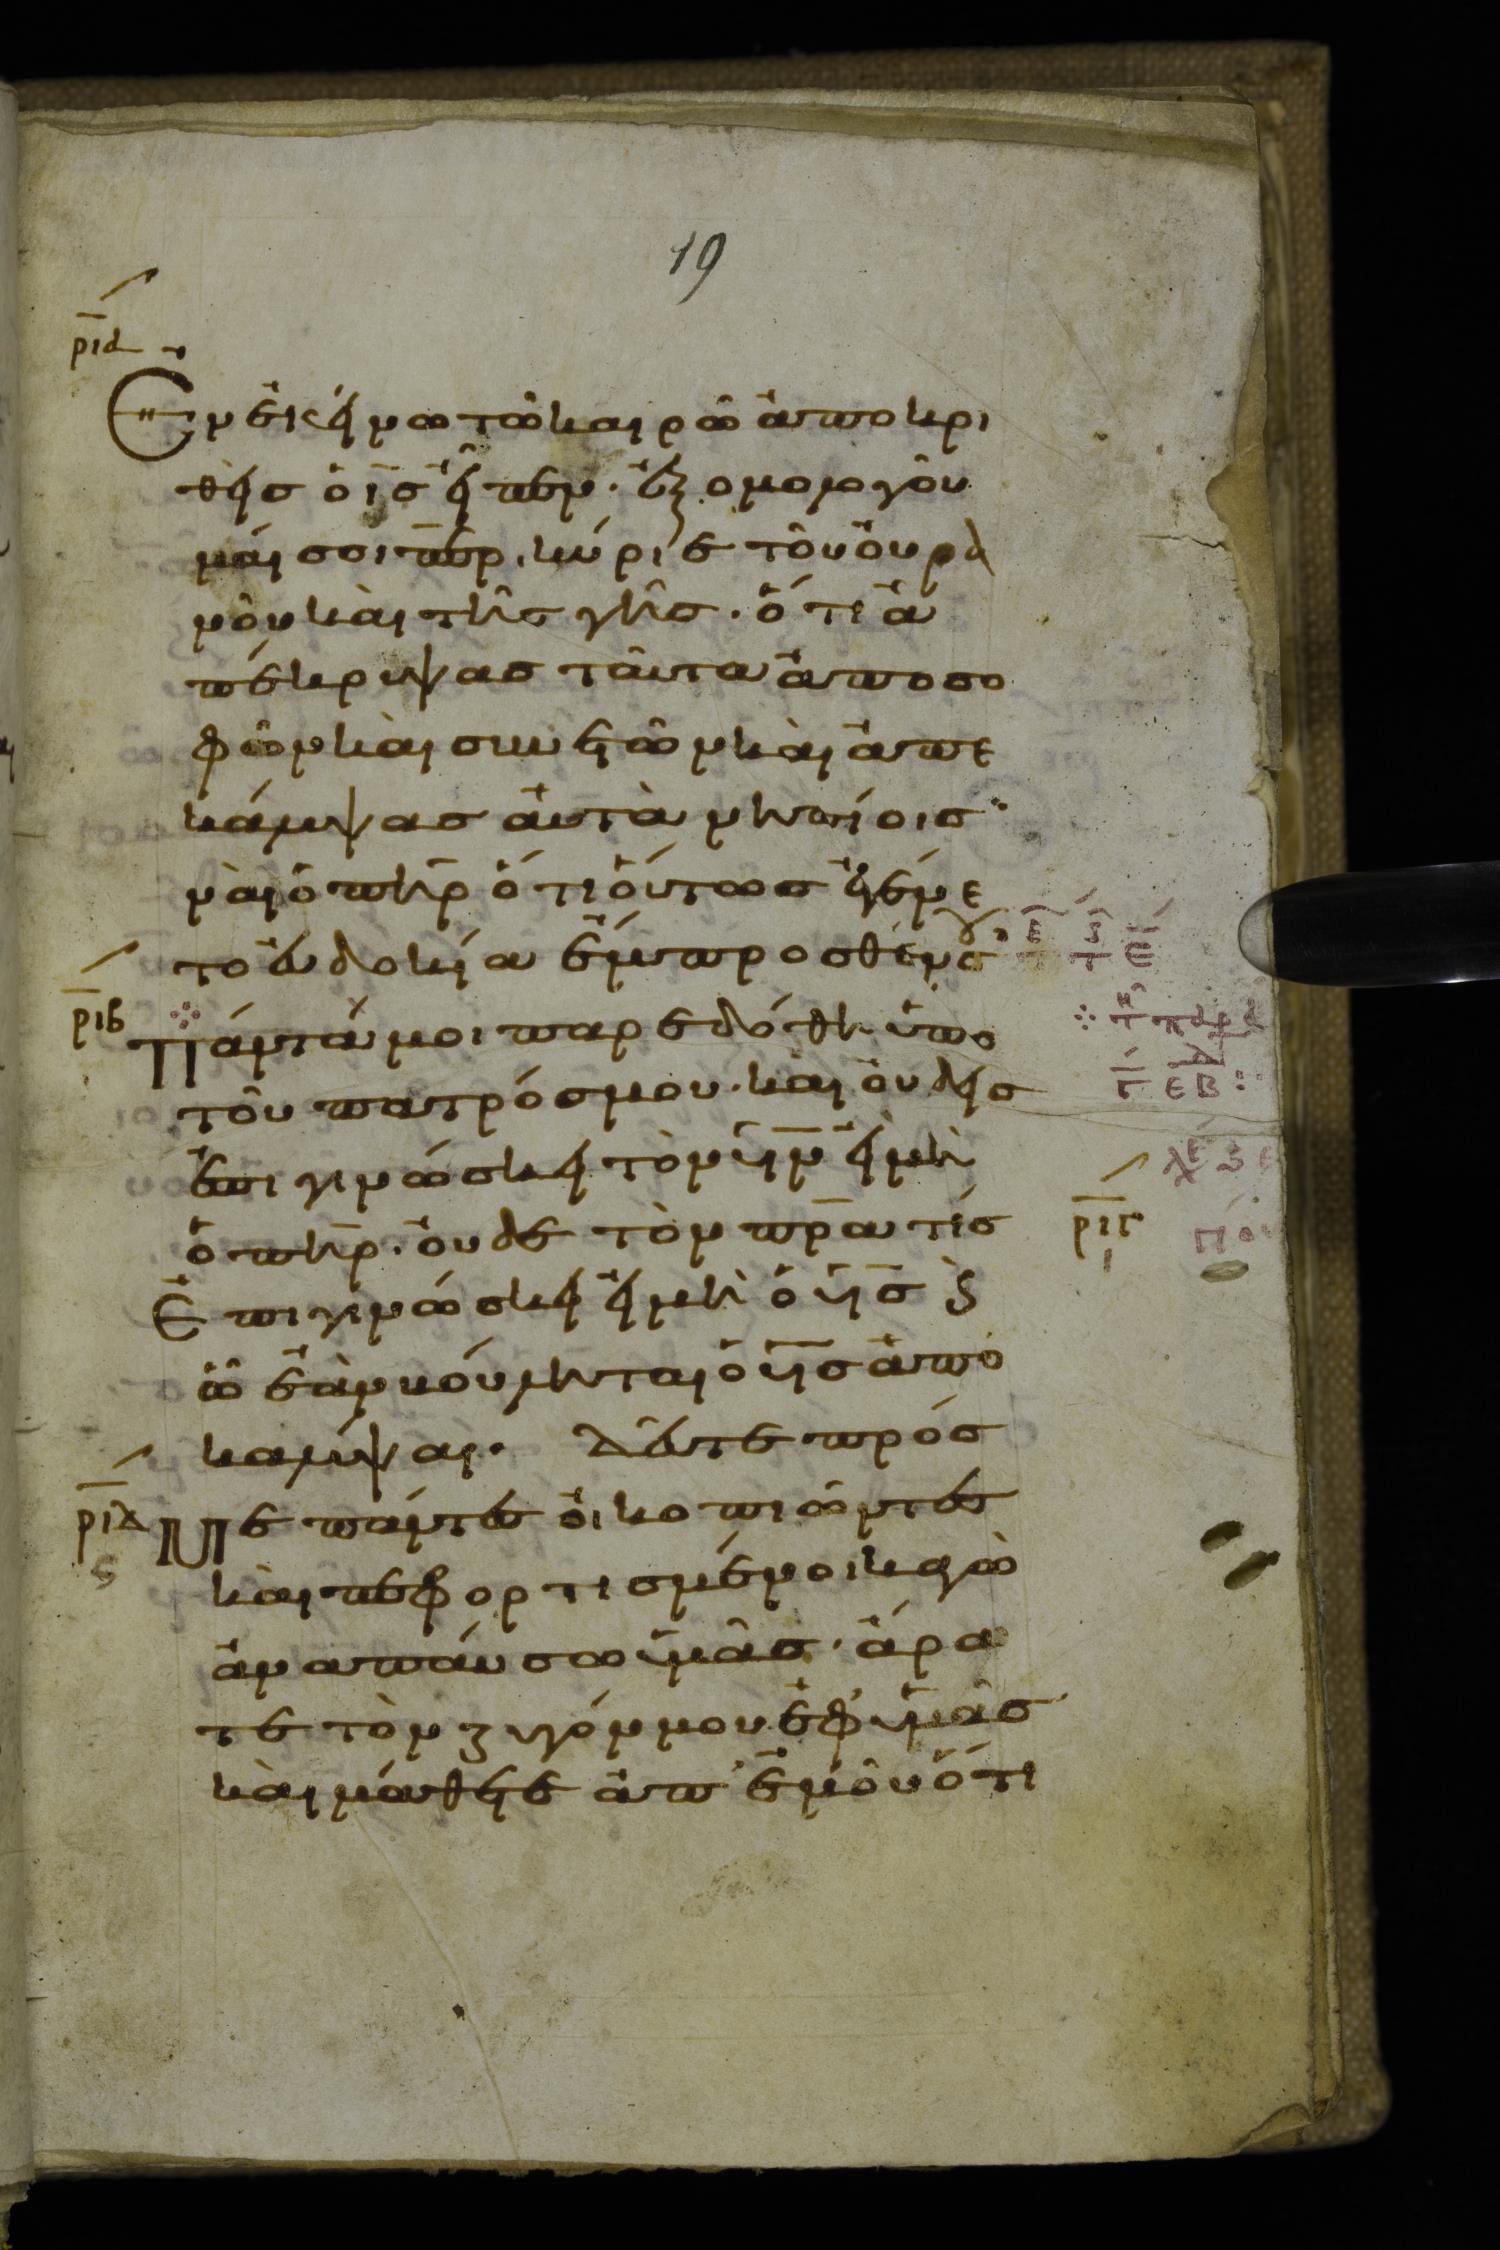 19
ρια
Ἐν ἐκείνω τῶ καιρῶ ἀποκρι
θεὶς ὁ ις εἶπεν· ἐξομολογοῦ
μαί σοι περ, κύριε τοῦ οὐρα
νοῦ καὶ τῆς γῆς· ὅτι ἀ
πέκρυψας ταῦτα ἀπο σο
φῶν καὶ συνετῶν καὶ ἀπε
κάλυψας αὐτὰ νηπίοις·
ναὶ ὁ πηρ ὅτι οὕτως ἐγένε
το εὐδοκία ἔμπροσθέν σου
ριβ Πάντά μοι παρεδόθη ὑπο
τοῦ πατρός μου· καὶ οὐδεὶς
ἐπιγινώσκει τὸν υν εἰ μὴ
ὁ πηρ· οὐδε τὸν πρα τίς ριγ
Ἐπιγινώσκει εἰ μὴ ὁ υς καὶ
ὧ ἐὰν βούληται ὁ υς ἀπο
καλύψαι· Δεῦτε πρός
ριδ Με πάντες οἱ κοπιῶντες
καὶ πεφορτισμένοι καγὼ
ἀναπαύσω ὑμᾶς· ἄρα
τε τὸν ζυγόν μου ἐφ' ὑμᾶς
καὶ μάθετε ἀπ' ἐμοῦ ὅτι